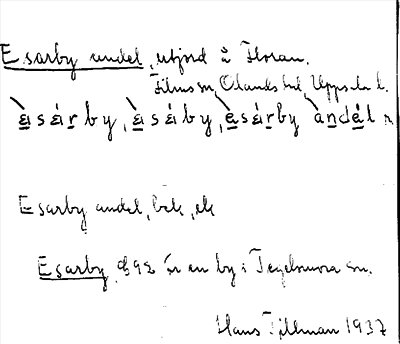 Esarby andel, utjord å Floran.
Films sn, Olands hd, Uppsala l.
ὲsέ́rby, ὲsέ́by, ὲsέ́rby àndέ́l
Esarby andel, bek, ek
Esarby är en by i Tegelsmora sn.
Hans Tillman 1937